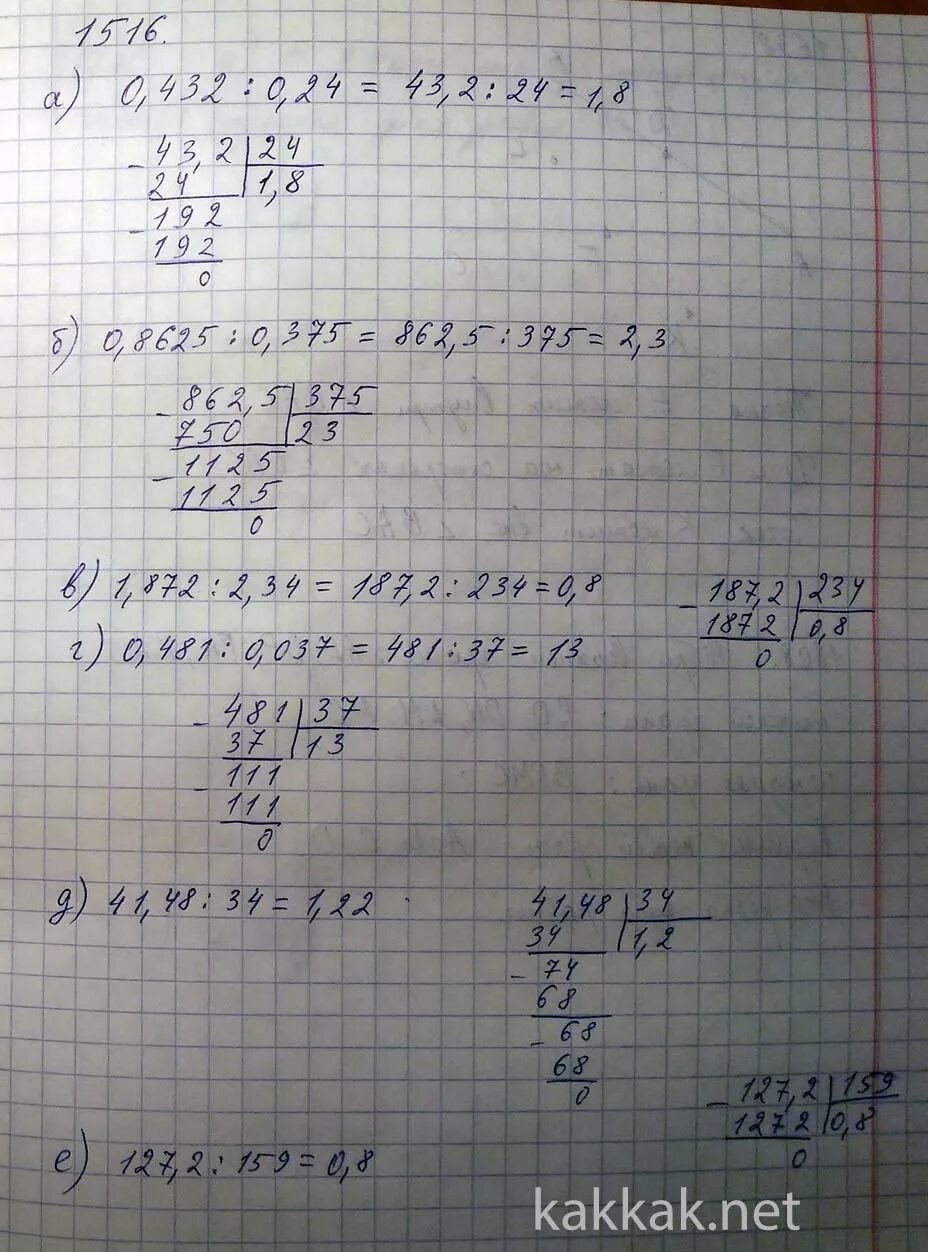 1516.
а) 0,432 : 0,24 = 43,2 : 24 = 1,8
- 43,2 | 24
24 | 1,8
- 192
192
0
б) 0,8625 : 0,375 = 862,5 : 375 = 2,3
- 862,5 | 375
750 | 23
- 1125
1125
0
в) 1,872 : 2,34 = 187,2 : 234 = 0,8
- 187,2 | 234
1872 | 0,8
0
г) 0,481 : 0,037 = 481 : 37 = 13
- 481 | 37
37 | 13
- 111
111
0
д) 41,48 : 34 = 1,22
41,48 | 34
34 | 1,2
- 74
68
- 68
68
0
- 127,2 | 159
1272 | 0,8
0
е) 127,2 : 159 = 0,8
kakkak.net